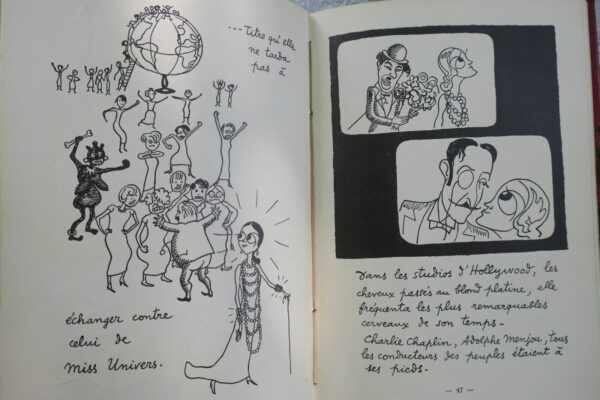 ---Titre qu'elle
ne tarda
pas à
échanger contre
celui de
Miss Univers.
Dans les studios d'Hollywood, les
cheveux passés au blond platine, elle
fréquenta les plus remarquables
cerveaux de son temps-
Charlie Chaplin, Adolphe Menjou, tous
les conducteurs des peuples étaient à
ses pieds-
- 47 -